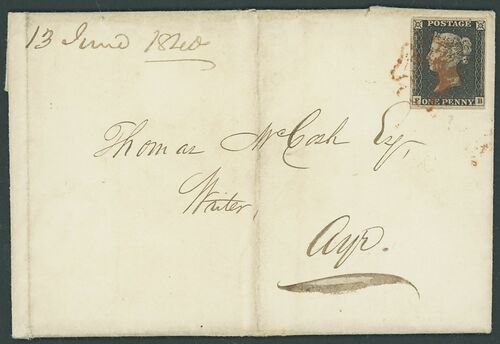 13 June 1840
POSTAGE
ONE PENNY
Thomas McCosh Esq,
Writer,
Ayr.